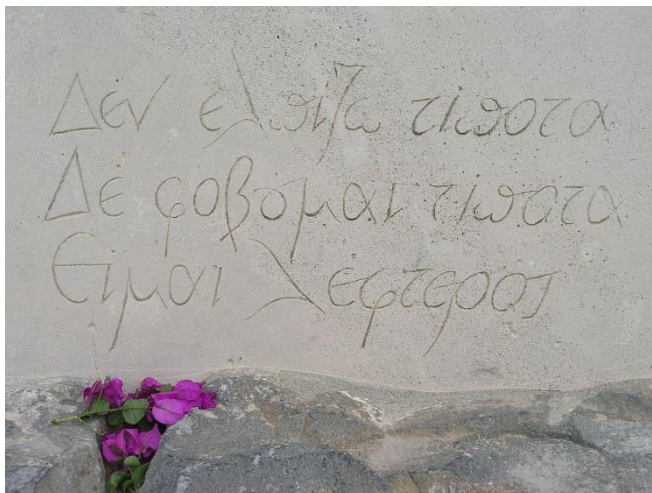 Δέν ελπίζω τίποτα
Δέ φοβῦμαι τίποτα
Είμαι λέφτερος